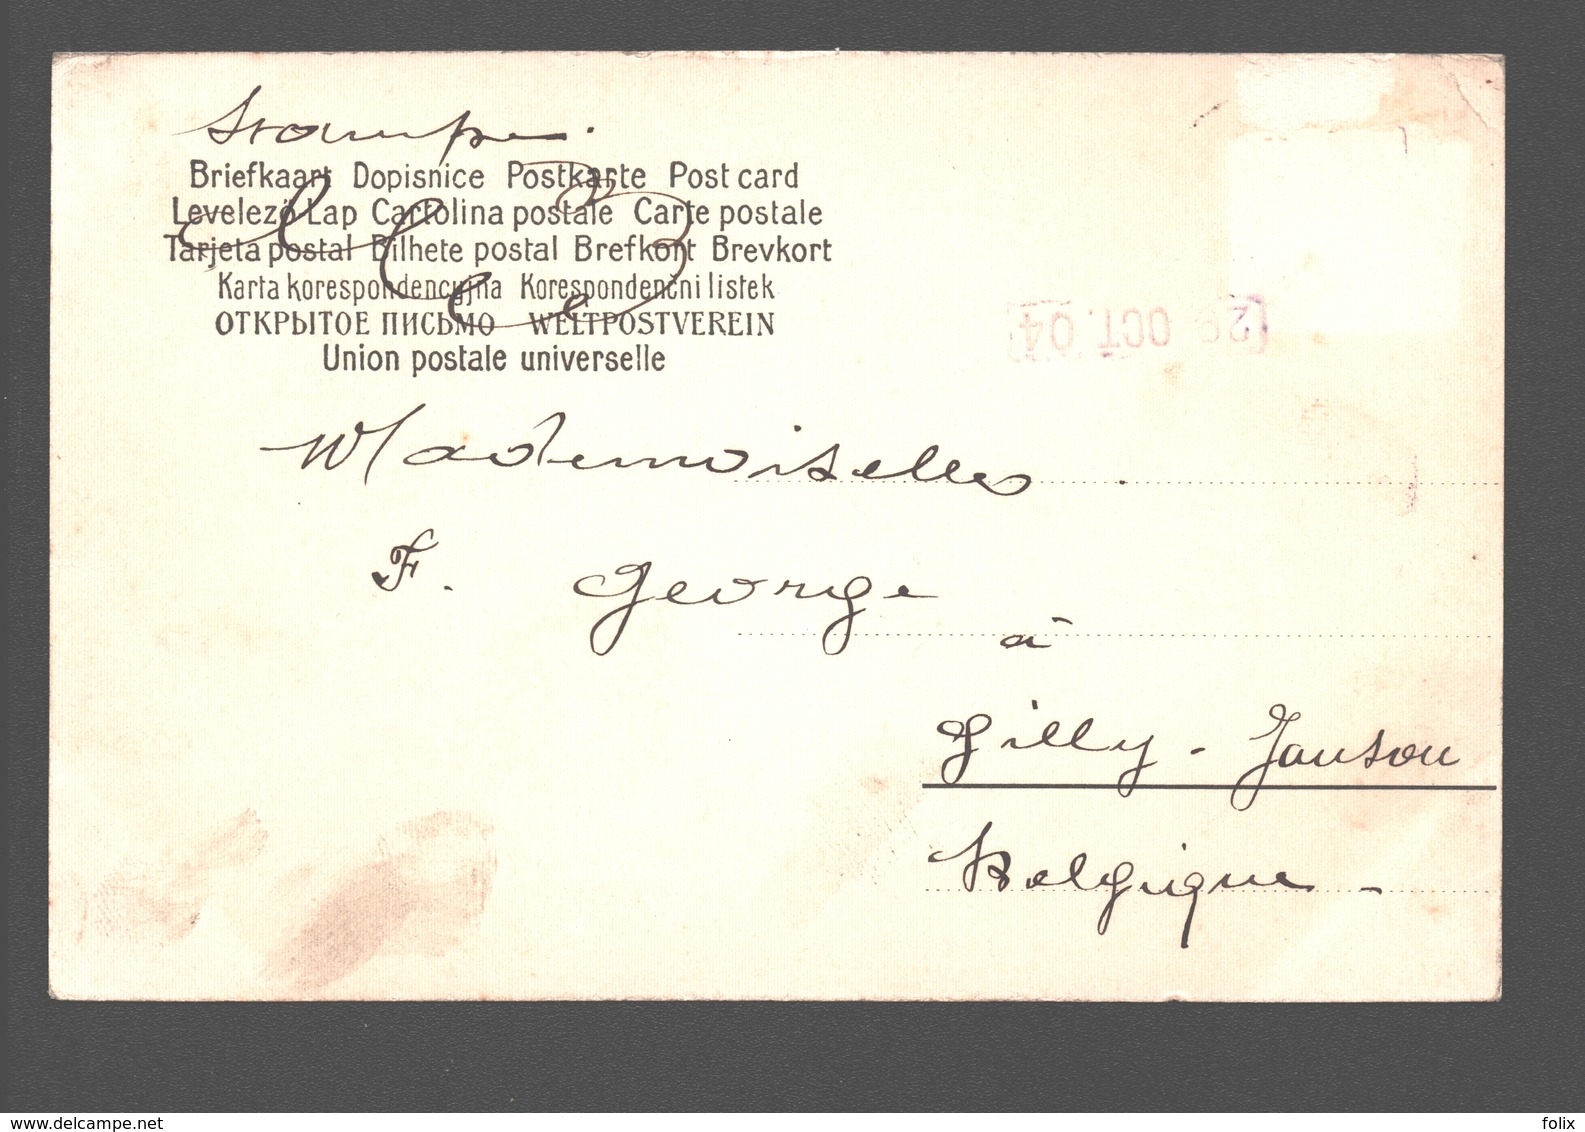 Stampe.
Briefkaart Dopisnice Postkarte Post card
Levelező Lap Cartolina postale Carte postale
Tarjeta postal Bilhete postal Brefkort Brevkort
Karta korespondencyjna Korespondenčni listek
ОТКРЫТОЕ ПИСЬМО WELTPOSTVEREIN
Union postale universelle
OCT. 04
Mademoiselle
F. George
à
Gilly - Janson
Belgique -
www.delcampe.net
folix